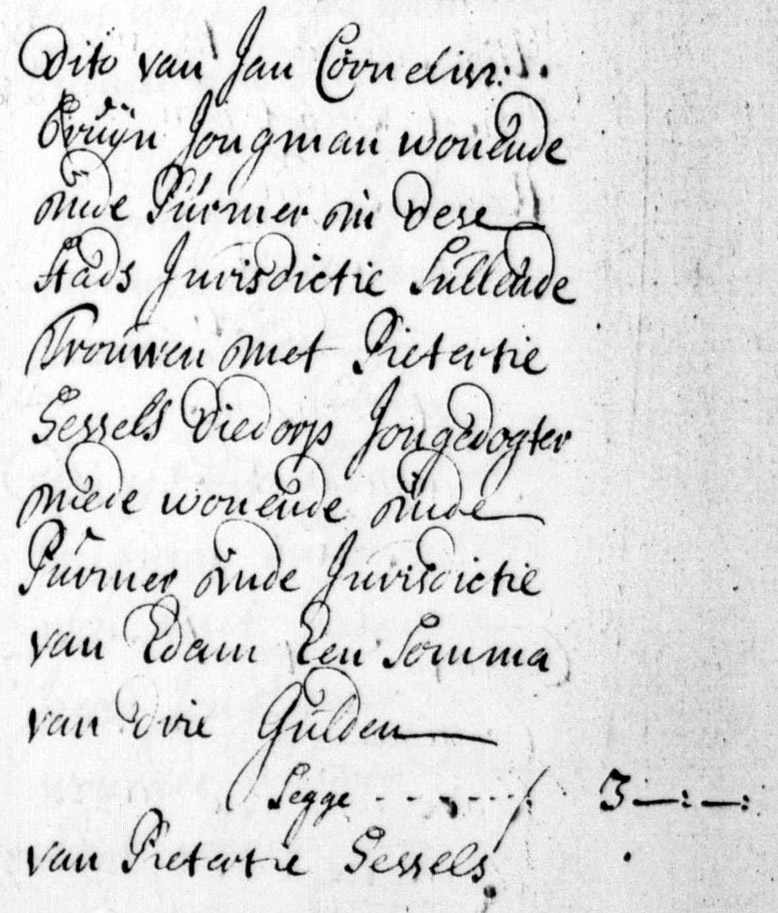 Dito van Jan Cornelisz:
Cruijn Jongman wonende
inde Purmer in dese
Stads Jurisdictie Sullende
Trouwen met Pietertie
Sessels Diedorp Jongedogter
mede wonende inde
Purmer inde Jurisdictie
van Edam Een Somma
van drie Gulden
Segge - - - - - - ƒ 3—:—:
van Pietertie Sessels